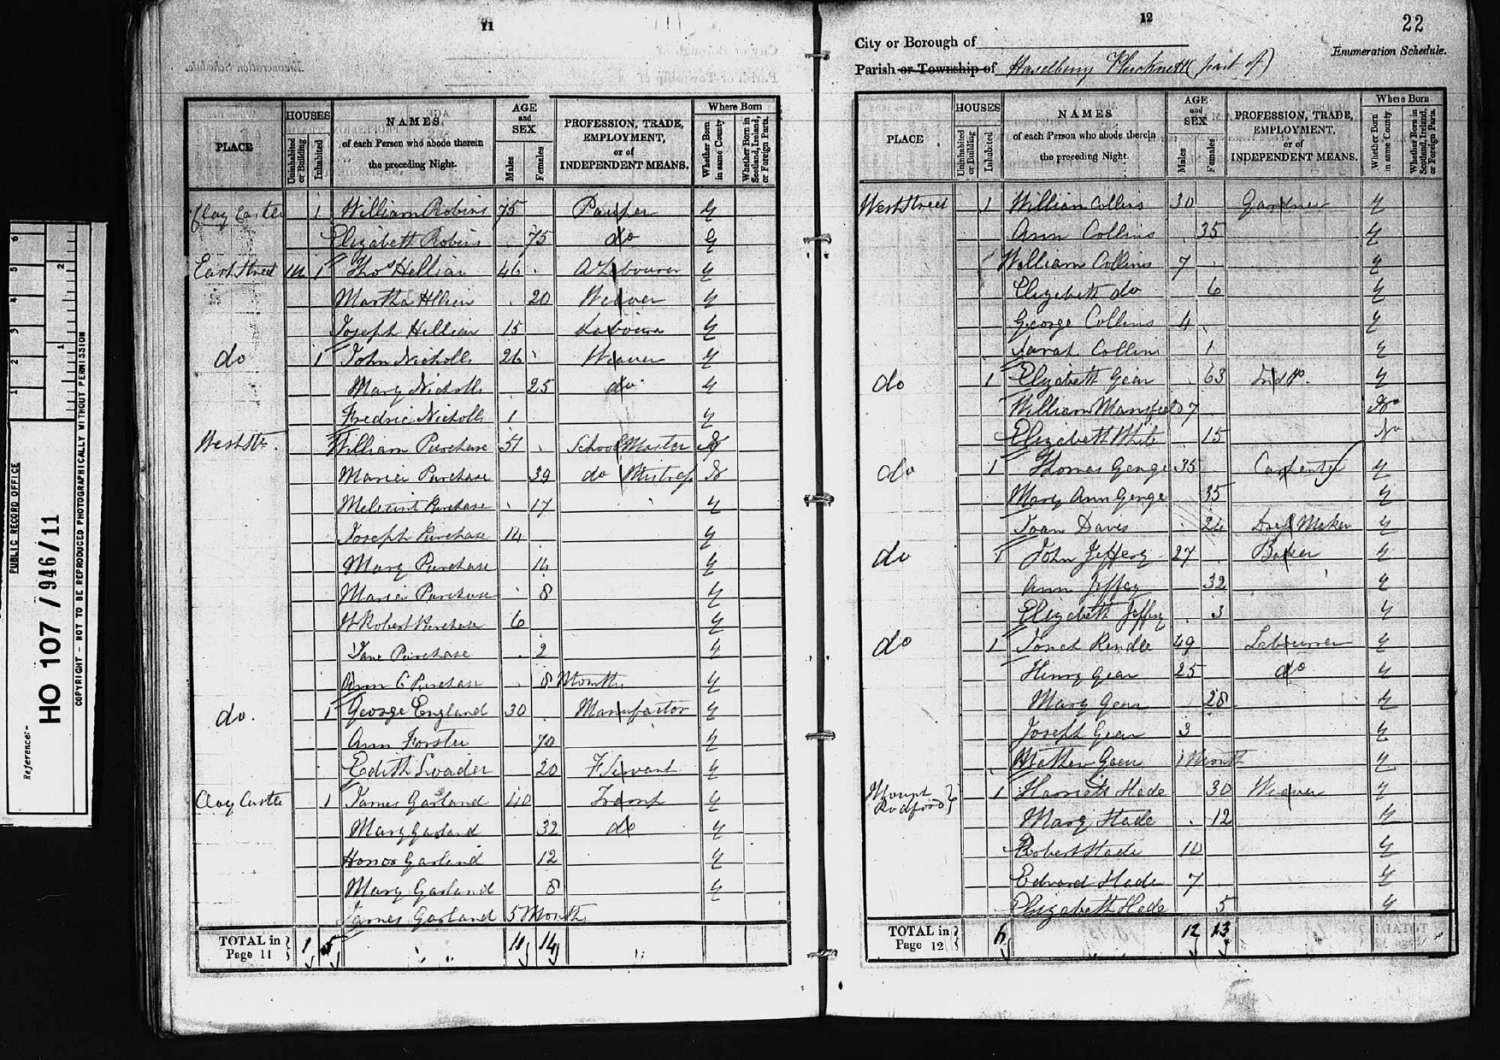 11
PLACE HOUSES Uninhabited or Building Inhabited NAMES of each Person who abode therein the preceding Night. AGE and SEX Males Females PROFESSION, TRADE, EMPLOYMENT, or of INDEPENDENT MEANS. Where Born Whether Born in same County Whether Born in Scotland, Ireland, or Foreign Parts.
Clay Castle 1 William Robins 75 Pauper y
Elizabeth Robins 75 do y
East Street 1 Thos Hellier 46 Labourer y
Martha Hellier 20 Weaver y
Joseph Hellier 15 Labourer y
do 1 John Nicholls 26 Weaver y
Mary Nicholls 25 do y
Fredric Nicholls 1 y
West Str. William Purchase 51 School Master
Maria Purchase 39 do Mistress
Purchase 17 y
Joseph Purchase 14 y
Mary Purchase y
Maria Purchase 8 y
Robert Purchase 6 y
Jane Purchase 2 y
Ann C Purchase 8 Months y
do. 1 George England 30 Manufactor y
Ann Forster 70 y
Edith Loader 20 F Servant y
Clay Castle 1 James Garland 40 y
Mary Garland 32 do y
Honor Garland 12 y
Mary Garland 8 y
James Garland 5 Month
TOTAL in Page 11 1 5 11 14
12
22
City or Borough of
Enumeration Schedule.
Parish or Township of Haselbury Plucknett (part of)
PLACE HOUSES Uninhabited or Building Inhabited NAMES of each Person who abode therein the preceding Night. AGE and SEX Males Females PROFESSION, TRADE, EMPLOYMENT, or of INDEPENDENT MEANS. Where Born Whether Born in same County Whether Born in Scotland, Ireland, or Foreign Parts.
West Street 1 William Collins 30 Gardner y
Ann Collins 35 y
William Collins 7 y
Elizabeth do 6 y
George Collins 4 y
Sarah Collins 1 y
do 1 Elizabeth Gear 63 Ind y
William 7 No
Elizabeth White 15 No
do 1 Thomas Genge 35 Carpenter y
Mary Ann Genge 35 y
Joan Daves Dress Maker y
do 1 John Jeffery 27 Baker y
Ann Jeffery 32 y
Elizabeth Jeffery 3 y
do 1 Rendle 49 Labourer y
Henry Gear 25 do y
Mary Gear 28 y
Joseph Gear 3 y
Gear 1 Month y
Mount Radford 1 Harriett Slade 30 Weaver y
Mary Slade 12 y
Robert Slade 10 y
Edward Slade 7 y
Elizabeth Slade 5 y
TOTAL in Page 12 6 12 13
PUBLIC RECORD OFFICE
1 2 3 4 5 6
1 2
Reference:-
HO 107 / 946/11
COPYRIGHT - NOT TO BE REPRODUCED PHOTOGRAPHICALLY WITHOUT PERMISSION